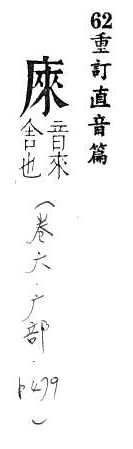 62重訂直音篇
庲
音來
舍也
(卷六·广部·p499)